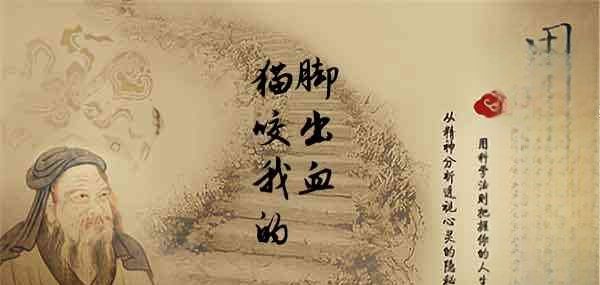 猫咬我的
脚出血
从精神分析透视心灵的隐秘
用科学法则把握你的人生